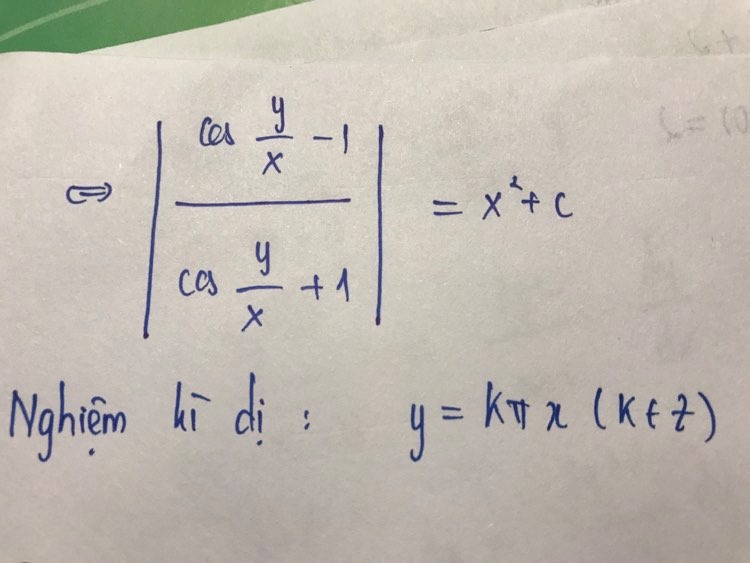 ⇔ | (cos y/x - 1) / (cos y/x + 1) | = x² + c
Nghiệm kì dị : y = kπx (k ∈ Z)